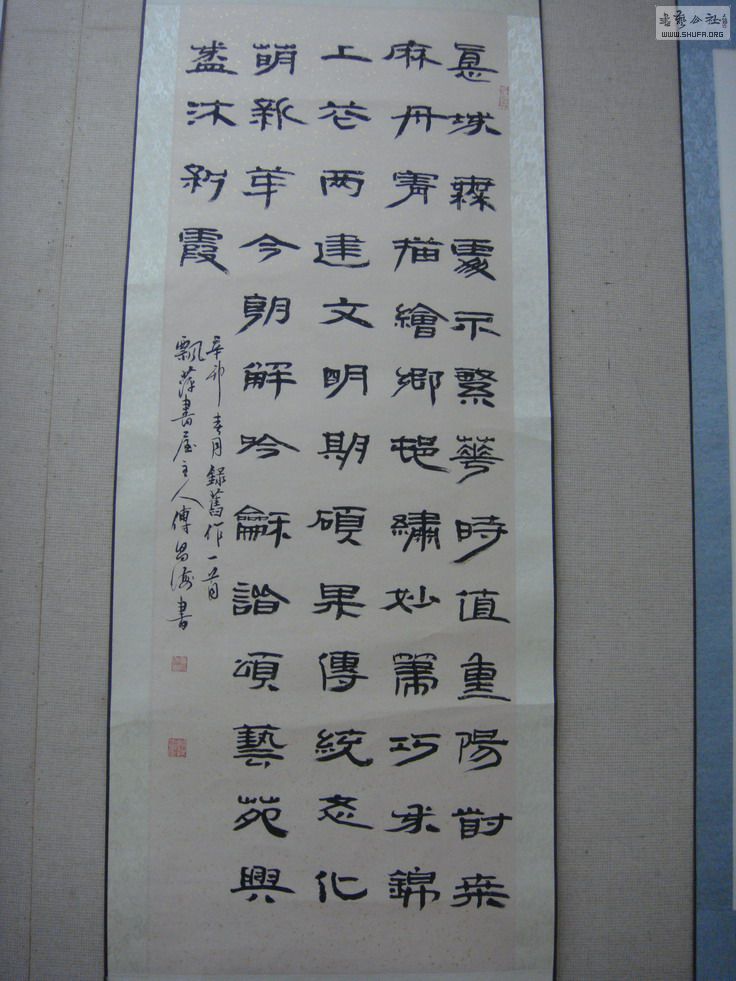 息城橆處不繁華時值重陽對桑
麻丹青描繪鄉邨繡妙筆巧成錦
上花两建文明期碩果傳統文化
萌新芽今朝解吟龢諧頌藝苑興
盛沐彩霞
辛卯春月錄舊作一首
飄萍書屋主人傅昌海書
書藝公社
WWW.SHUFA.ORG